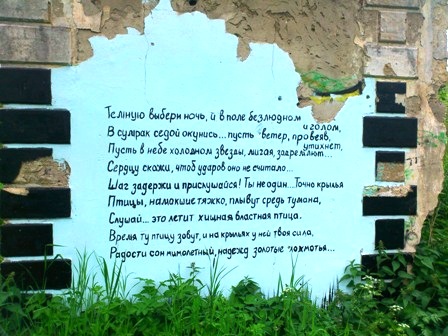 Темную выбери ночь, и в поле безлюдном
и голом,
В сумрак седой окунись... пусть ветер, провеяв,
утихнет,
Пусть в небе холодном звезды, мигая, задремлют...
Сердцу скажи, чтоб ударов оно не считало...
Шаг задержи и прислушайся! Ты не один... Точно крылья
Птицы, намокшие тяжко, плывут средь тумана,
Слушай... это летит хищная властная птица.
Время ту птицу зовут, и на крыльях у ней твоя сила,
Радости сон мимолетный, надежд золотые лохмотья...